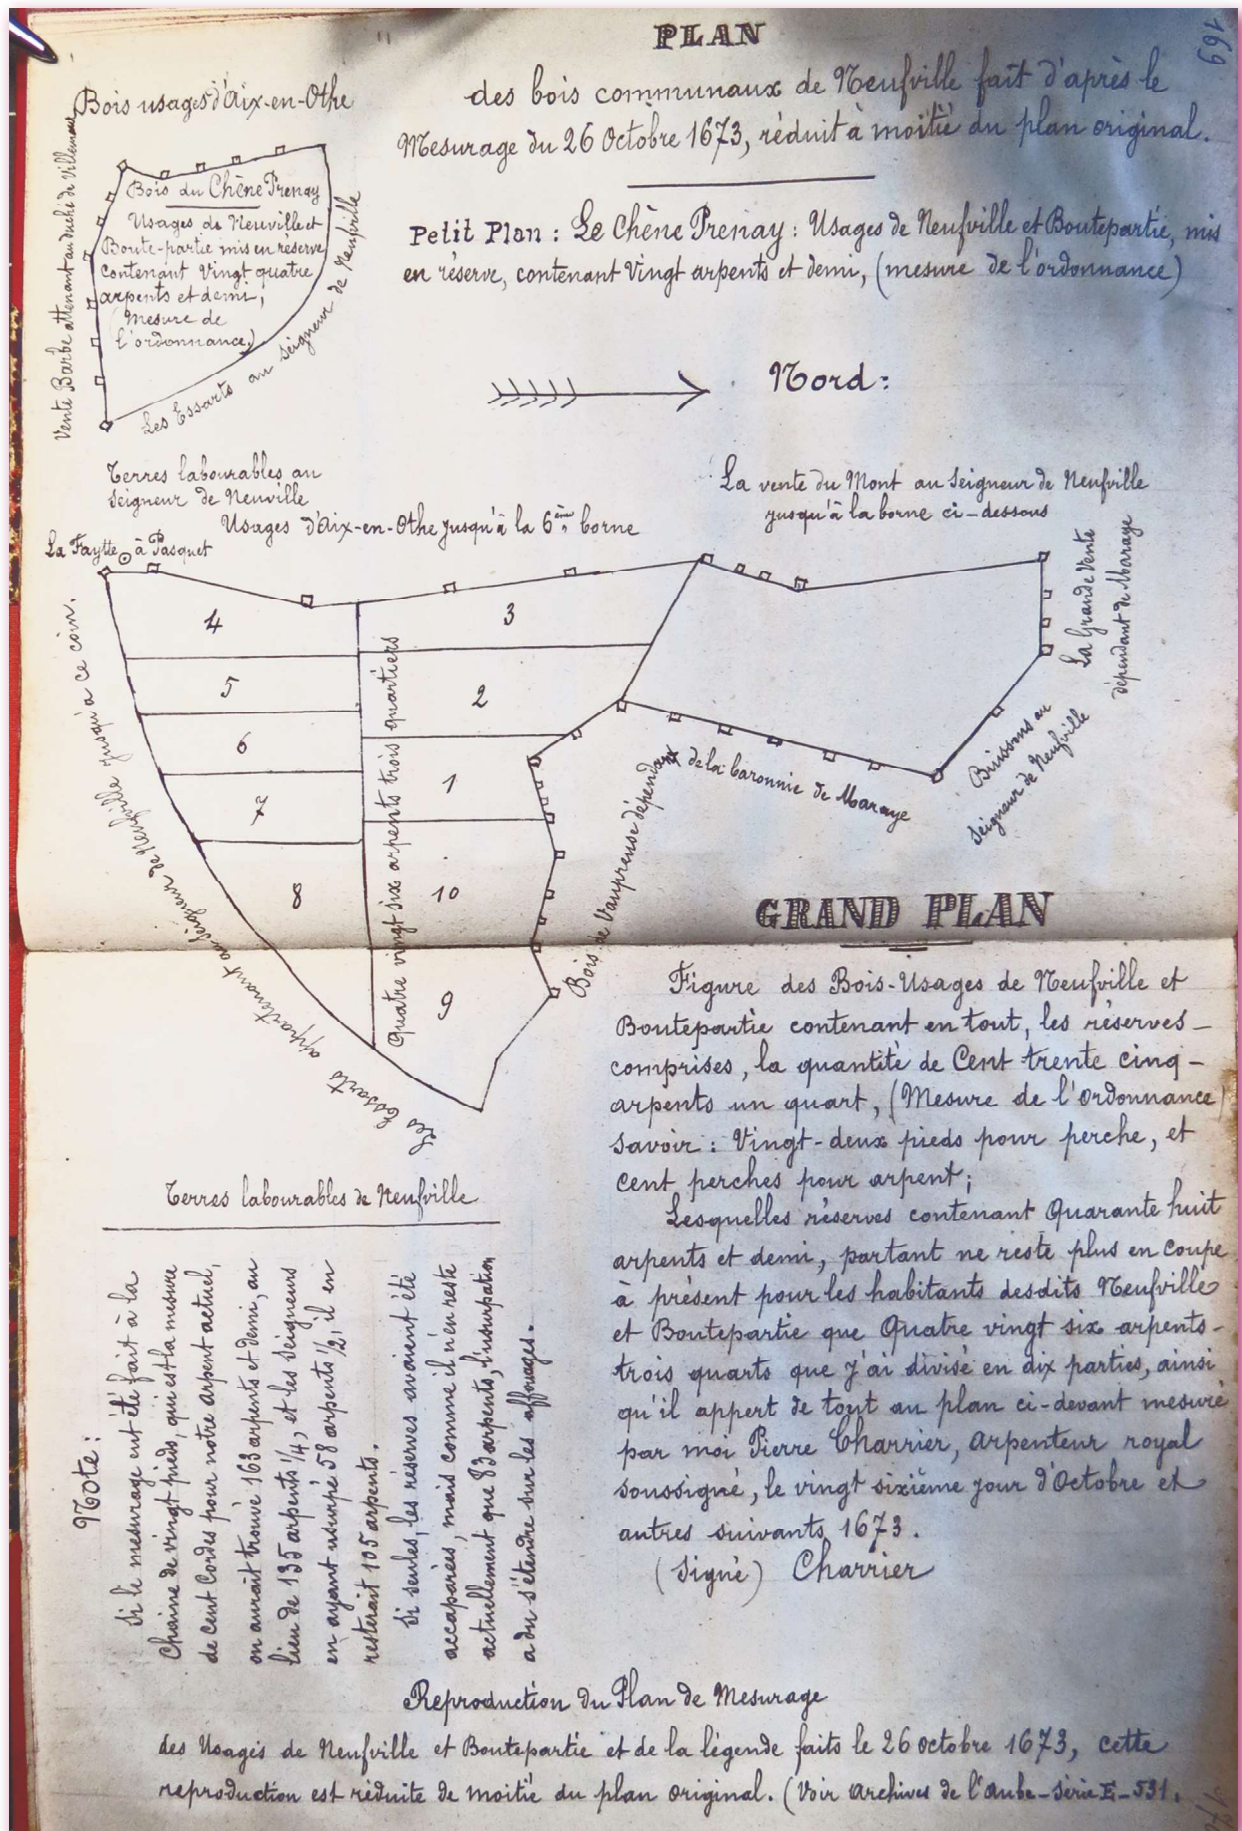 169
PLAN
des bois communaux de Neufville fait d'après le
Mesurage du 26 Octobre 1673, réduit à moitié du plan original.
Bois usages d'Aix-en-Othe
Vente Barbe attenant au duché de Villemaur
Bois du Chêne Prenay
Usages de Neuville et
Boute-partie mis en réserve
contenant Vingt quatre
arpents et demi,
(Mesure de
l'ordonnance)
Les Essarts au Seigneur de Neufville
Petit Plan : Le Chêne Prenay : Usages de Neufville et Boutepartie, mis
en réserve, contenant Vingt arpents et demi, (mesure de l'ordonnance)
Nord :
Terres labourables au
Seigneur de Neuville
Usages d'Aix-en-Othe jusqu'à la 6ème borne
La Faytte à Pasquet
La vente du Mont au Seigneur de Neufville
jusqu'à la borne ci-dessous
La Grande Vente
dépendant de Maraye
4
3
5
2
6
1
7
8
10
9
Quatre vingt six arpents trois quartiers
Les Essarts appartenant au Seigneur de Neufville jusqu'à ce coin.
Bois de Vauprense dépendant de la baronnie de Maraye
Buissons au
Seigneur de Neufville
GRAND PLAN
Figure des Bois-Usages de Neufville et
Boutepartie contenant en tout, les réserves-
comprises, la quantité de Cent trente cinq-
arpents un quart, (Mesure de l'Ordonnance)
Savoir : Vingt-deux pieds pour perche, et
Cent perches pour arpent ;
Lesquelles réserves contenant Quarante huit
arpents et demi, partant ne reste plus en coupe
à présent pour les habitants desdits Neufville
et Boutepartie que Quatre vingt six arpents-
trois quarts que j'ai divisé en dix parties, ainsi
qu'il appert de tout au plan ci-devant mesuré
par moi Pierre Charrier, arpenteur royal
soussigné, le vingt sixième jour d'Octobre et
autres suivants 1673.
(Signé) Charrier
Terres labourables de Neufville
Note :
Si le mesurage eut été fait à la
Chaîne de vingt pieds, qui est la mesure
de cent Cordes pour notre arpent actuel,
on aurait trouvé 163 arpents et demi, au
lieu de 135 arpents 1/4, et les Seigneurs
en ayant usurpé 58 arpents 1/2, il en
resterait 105 arpents.
Si seules, les réserves avaient été
accaparées, mais comme il n'en reste
actuellement que 83 arpents, l'usurpation
a du s'étendre sur les affouages.
Reproduction du Plan de Mesurage
des Usages de Neufville et Boutepartie et de la légende faits le 26 octobre 1673, cette
reproduction est réduite de moitié du plan original. (Voir Archives de l'Aube-Série E-531.